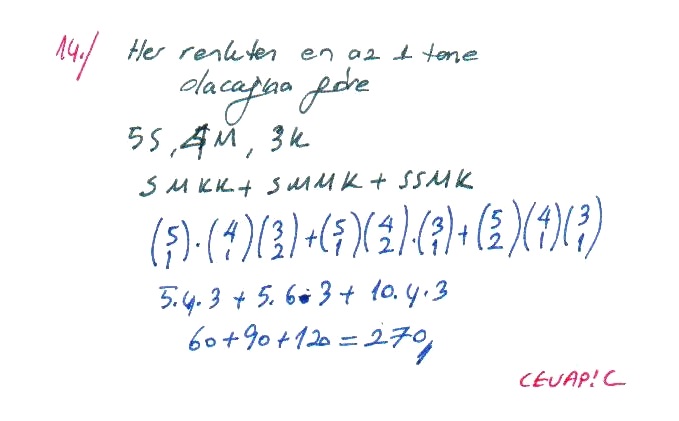 14./ Her renkten en az 1 tane
olacağına göre
5S, 4M, 3K
SMKK + SMMK + SSMK
(5 1).(4 1)(3 2)+(5 1)(4 2).(3 1)+(5 2)(4 1)(3 1)
5.4.3 + 5.6.3 + 10.4.3
60+90+120=270,
CEVAP: C